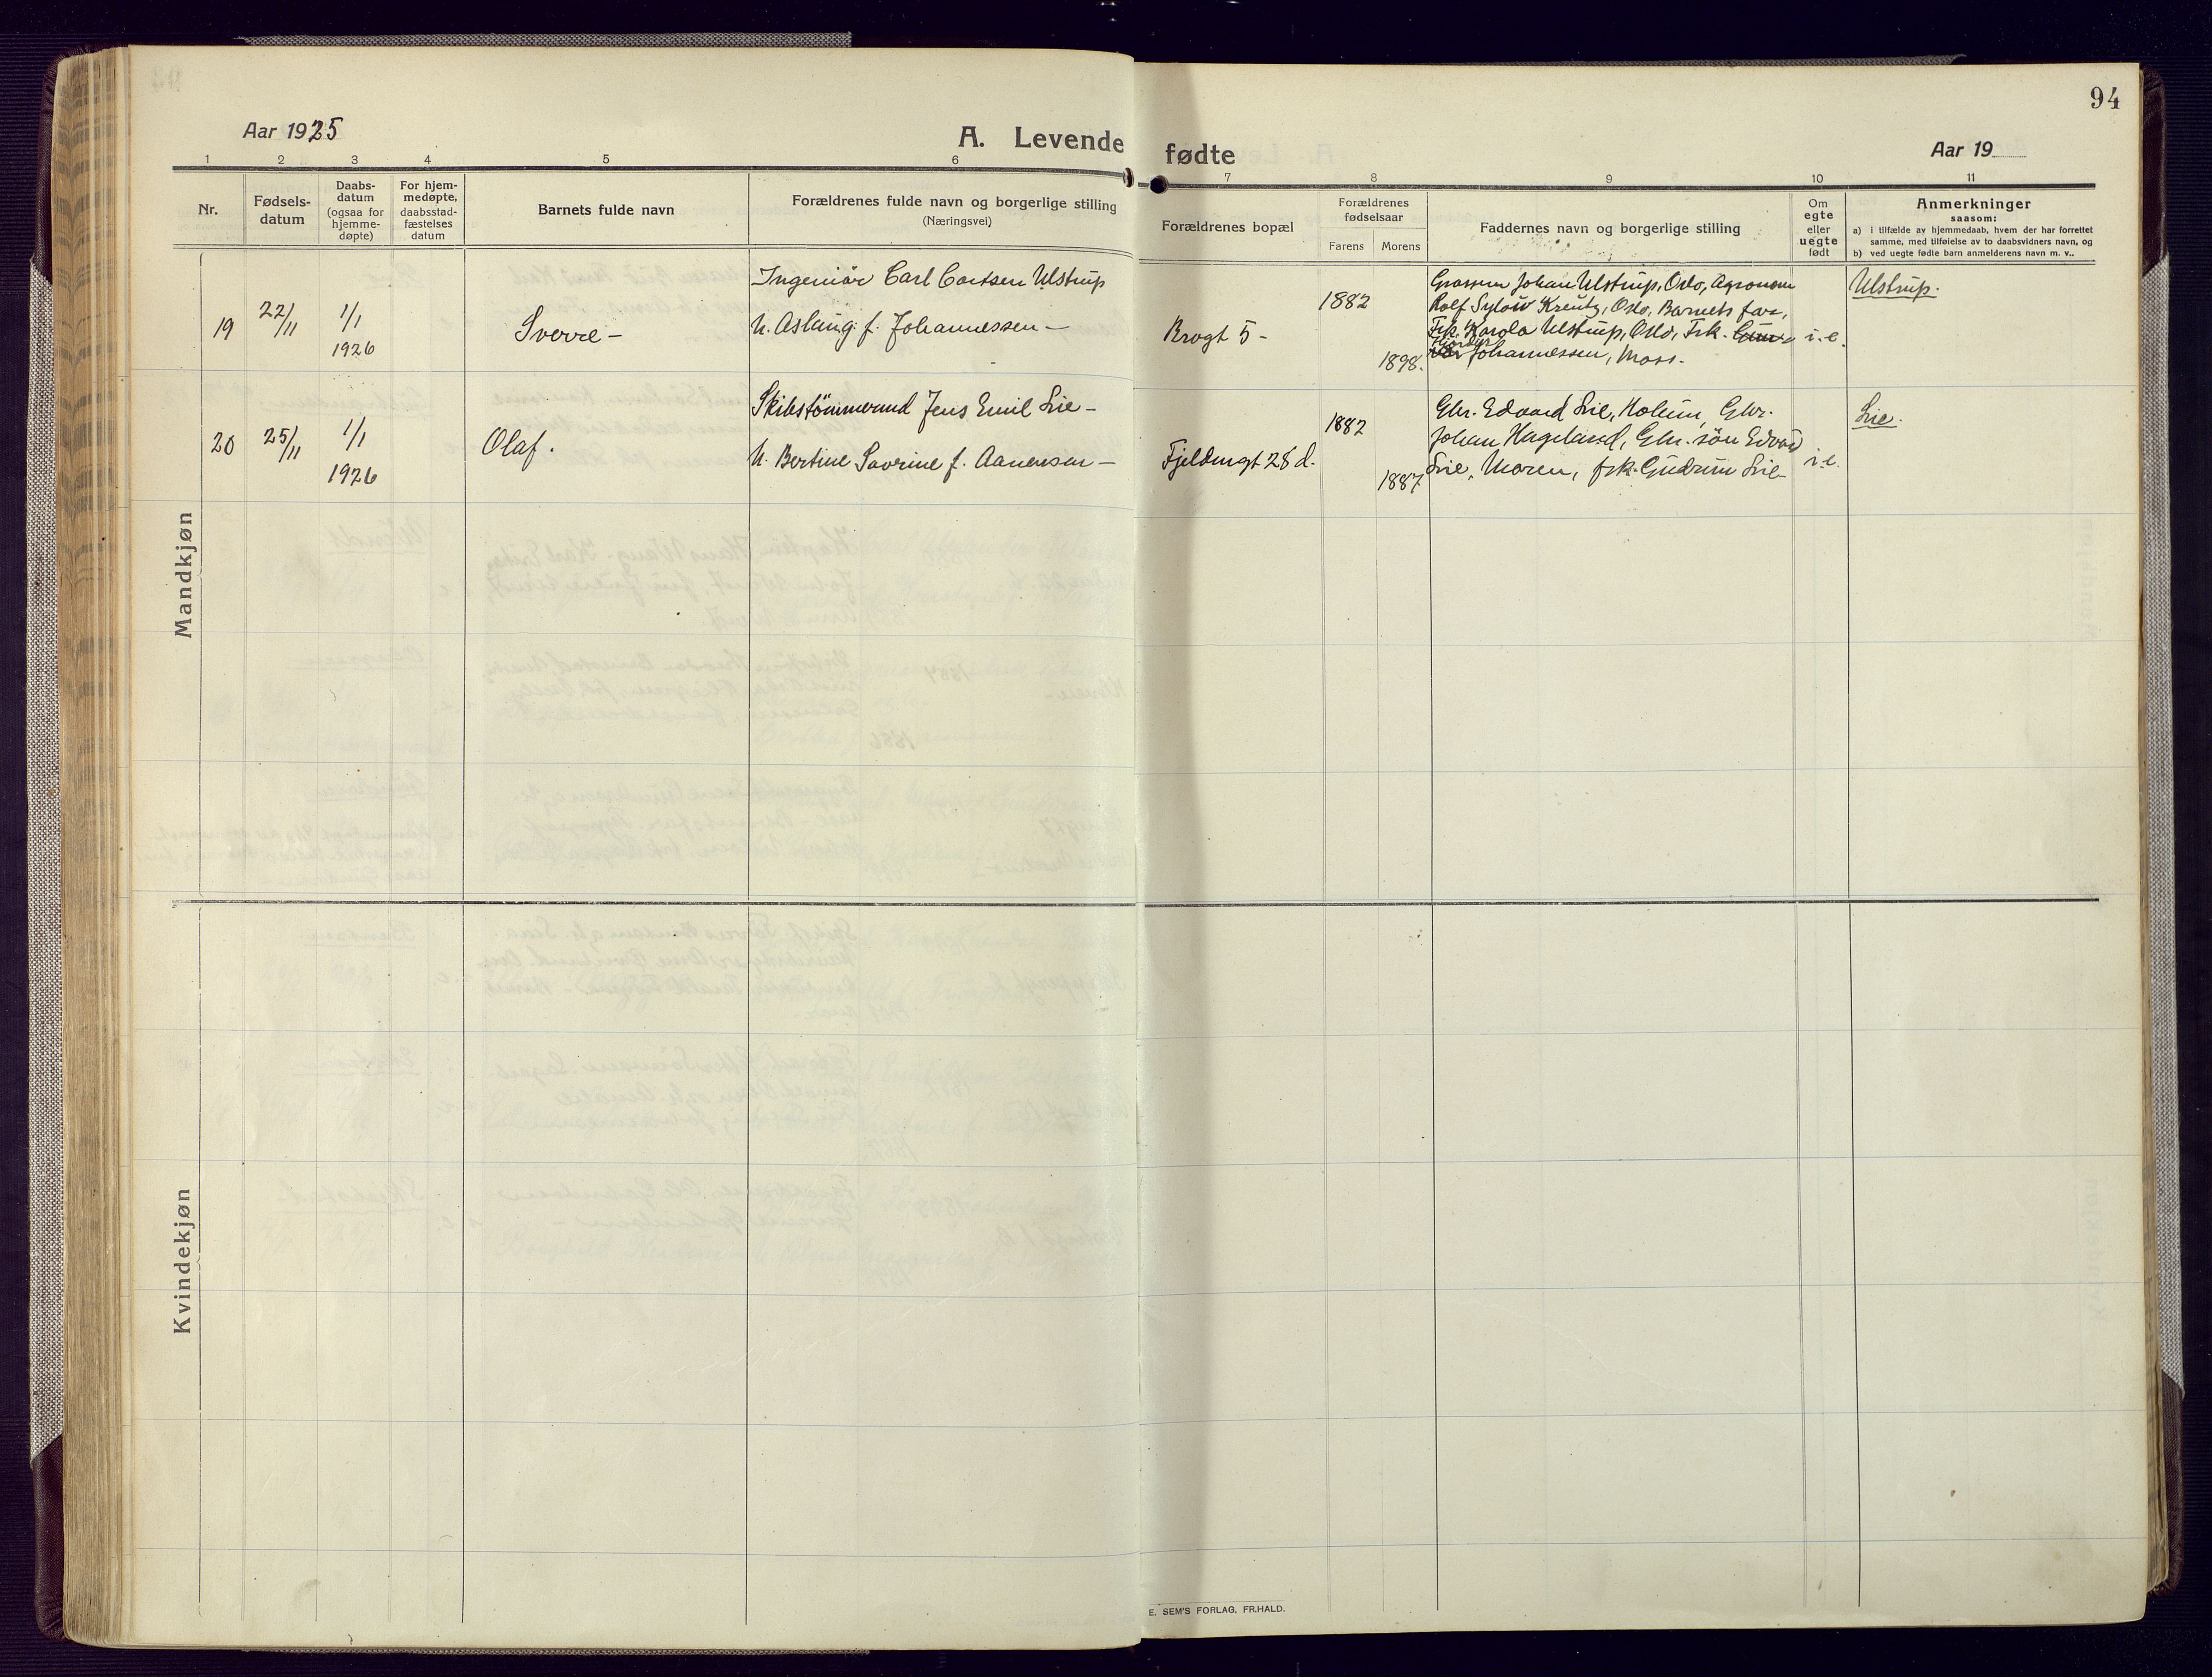 94
Aar 1925
A. Levende
fødte
Aar 19
1 2 3 4 5 6 7 8 9 10 11
Nr.
Fødsels-
datum
Daabs-
datum
(ogsaa for
hjemme-
døpte)
For hjem-
medøpte,
daabsstad-
fæstelses
datum
Barnets fulde navn
Forældrenes fulde navn og borgerlige stilling
(Næringsvei)
Forældrenes bopæl
Forældrenes
fødselsaar
Farens Morens
Faddernes navn og borgerlige stilling
Om
egte
eller
uegte
født
Anmerkninger
saasom:
a) i tilfælde av hjemmedaab, hvem der har forrettet
samme, med tilføielse av to daabsvidners navn, og
b) ved uegte fødte barn anmelderens navn m. v..
Mandkjøn
19
22/11
1/1
1926
Sverre –
Ingeniør Carl Coctsen Ulstrup
h. Aslaug f. Johannessen –
Brogt 5 –
1882
1898.
Johan Ulstrup, Oslo, Agronom
Rolf Sylow Kreutz, Oslo, Barnets far,
Frk. Karola Ulstrup, Oslo, Frk.
Johannessen, Moss.
i.e.
Ulstrup.
20
25/11
1/1
1926
Olaf.
Skibstömmermd Jens Emil Lie –
h. Bertine Severine f. Aanensen –
Fjeldmgt 28 d.
1882
1887
Gbr. Edvard Lie, Holum, Gbr.
Johan Hageland, Gbr. sön Edvard
Lie, Moren, frk. Gudrun Lie
i.e.
Lie.
Kvindekjøn
E. SEM'S FORLAG, FR.HALD.